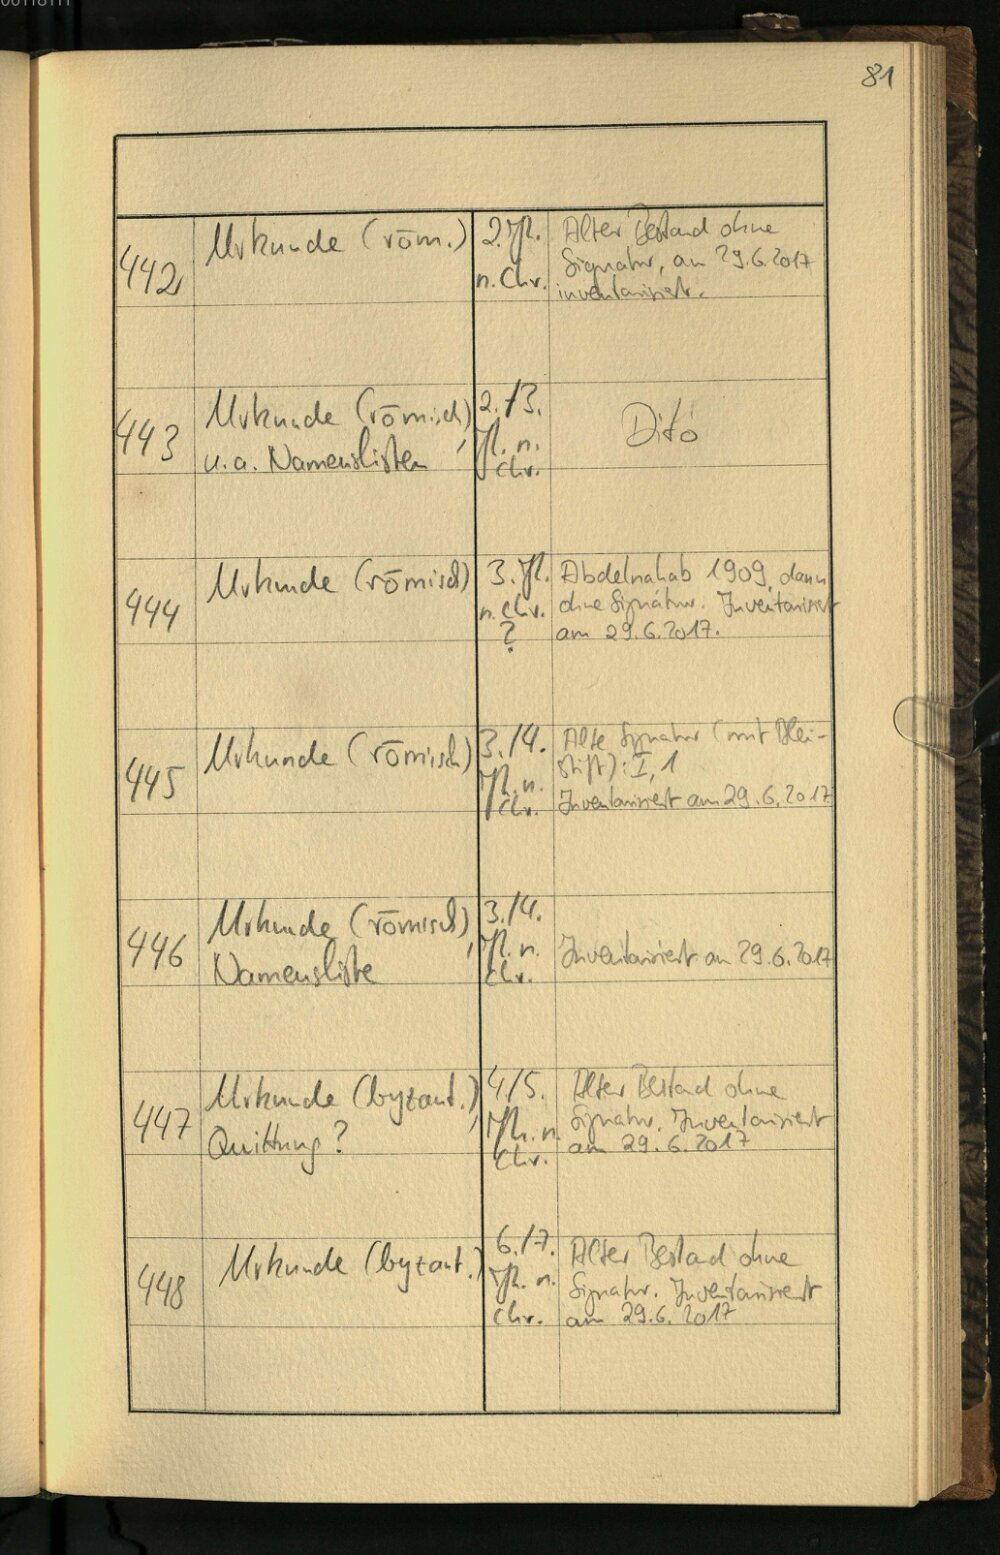 81
442
Urkunde (röm.)
2. Jh.
n. Chr.
Alter Bestand ohne
Signatur, am 29.6.2017
inventarisiert.
443
Urkunde (römisch),
u.a. Namenslisten
2./3.
Jh. n.
Chr.
Dito
444
Urkunde (römisch)
3. Jh.
n. Chr.
?
Abdelwahab 1909, dann
ohne Signatur. Inventarisiert
am 29.6.2017.
445
Urkunde (römisch)
3./4.
Jh. n.
Chr.
Alte Signatur (mit Blei-
stift): I, 1
Inventarisiert am 29.6.2017
446
Urkunde (römisch),
Namensliste
3./4.
Jh. n.
Chr.
Inventarisiert am 29.6.2017
447
Urkunde (byzant.),
Quittung?
4./5.
Jh. n.
Chr.
Alter Bestand ohne
Signatur. Inventarisiert
am 29.6.2017
448
Urkunde (byzant.)
6./7.
Jh. n.
Chr.
Alter Bestand ohne
Signatur. Inventarisiert
am 29.6.2017